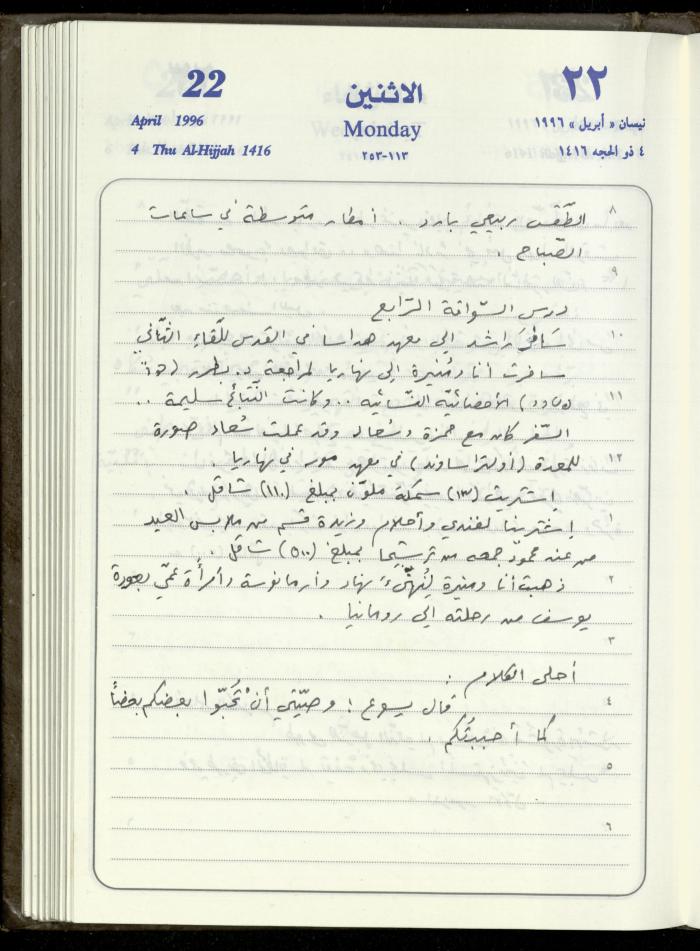 22
April 1996
4 Thu Al-Hijjah 1416
الاثنين
Monday
١١٣-٢٥٣
٢٢
نيسان « أبريل » ١٩٩٦
٤ ذو الحجه ١٤١٦
٨ الطّقس ربيعي بارد .. أمطار متوسطة في ساعات
الصّباح .
٩
درس السّواقة الرّابع
١٠ سَافَرَ راشد إلى معهد هداسا في القدس للّقاءِ الثّاني
سافرت أنا ومُنيرة إلى نهاريا لمراجعة د. بطرر
١١ الأخصّائيّة النّسائيّه .. وكانت النّتائج سليمة ..
السّفر كان مع حمزة وسُعاد وقد عملت سُعاد صورة
١٢ للمعدة (أولتراساوند) في معهد مور في نهاريا .
إشتريت (١٣) سمكة ملوّن بمبلغ (١١٠) شاقل .
١ إشترينا لفندي وأحلام وزيدة قسم من ملابس العيد
من عند محمود جمعه من ترشيحا بمبلغ (٥٠٠) شاقل .
٢ ذهبت أنا ومنيرة لِنُهنّىءَ نهاد وأرمانوسة وأمرأة عمّي بعودة
يوسف من رحلته إلى رومانيا .
٣
أحلى الكلام :
٤ قال يسوع : وصيّتي أنْ تُحبّوا بعضكم بعضاً
كما أحببتُكم ..
٥
٦